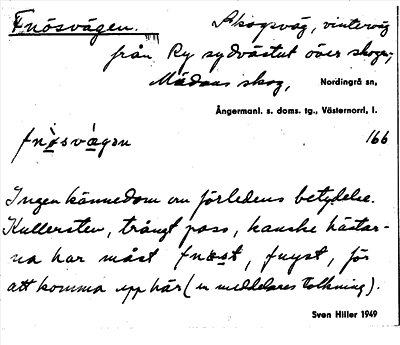 Fnösvägen. Skogsväg, vinterväg
från Ry sydvästut över skogen,
Mädans skog, Nordingrå sn,
Ångermanl. s. doms. tg., Västernorrl. l.
fnø̀svæ̀gən 166
Ingen kännedom om förledens betydelse.
Kullersten, trångt pass, kanske hästar-
na har måst fnøst, fnyst, för
att komma upp här (en meddelares tolkning).
Sven Hiller 1949